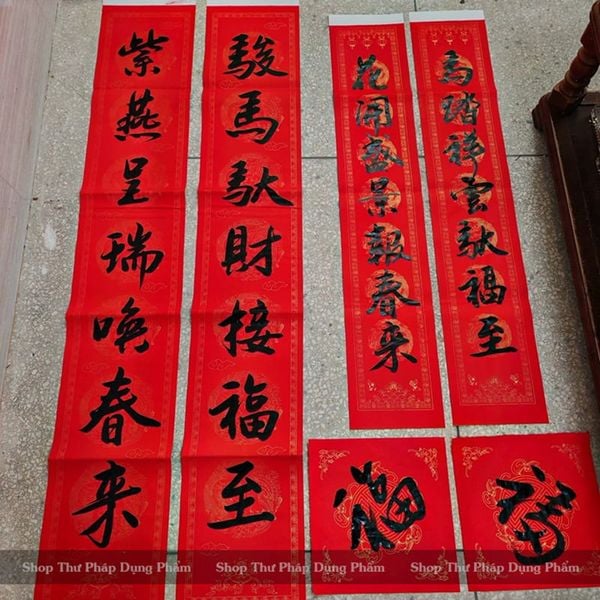 駿馬献財接福至
紫燕呈瑞喚春来
馬踏祥雲献福至
花開盛景報春来
福
福
Shop Thư Pháp Dụng Phẩm
Shop Thư Pháp Dụng Phẩm
Shop Thư Pháp Dụng Phẩm